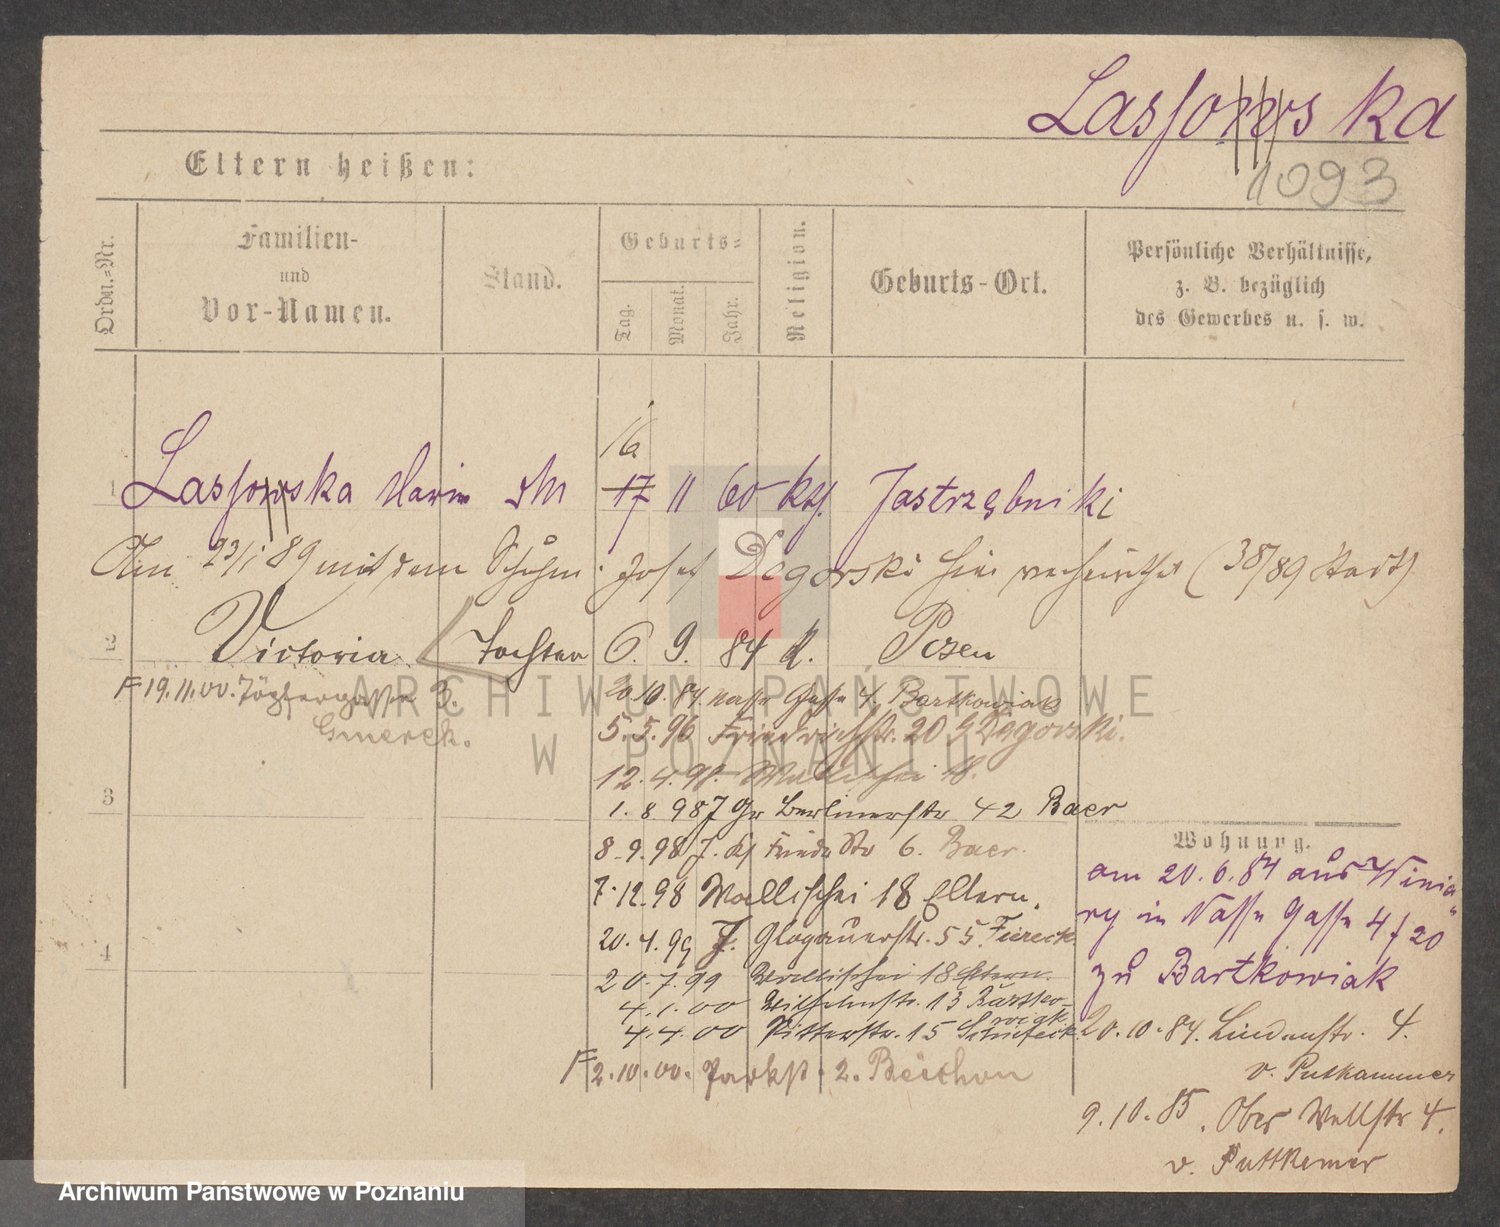 Lassowska
1093
Eltern heißen:
Ordn.-Nr.
Familien-
und
Vor-Namen.
Stand.
Geburts-
Tag.
Monat.
Jahr.
Religion.
Geburts-Ort.
Persönliche Verhältnisse,
z. B. bezüglich
des Gewerbes u. s. w.
16
1 Lassowska Marie 17 11 60 kth. Jastrzębniki
Am 23/1 89 mit dem Schuhm. Josef Degorski hier verheirathet (38/89 Stadt)
2 Victoria Tochter 6. 9. 84 k. Posen
F 19.11.00. Töpfergasse 3.
20.10.84 nasse Gasse 4. Bartkowiak
5.5.96 Friedrichstr. 20 Degorski.
12.4.98. Wallischei 18.
3
1.8.98 J Gr Berlinerstr 42 Baer
Wohnung.
8.9.98 J. Str 6. Baer.
7.12.98 Wallischei 18 Eltern.
20.4.99 J. Glogauerstr. 55
4
20.7.99 Wallischei 18 Eltern.
4.1.00 Wilhelmstr. 13
4.4.00 Ritterstr. 15
F 2.10.00. Parkstr. 2.
am 20.6.84 aus Winia
ry in Nasse Gasse 4 f 20
zu Bartkowiak
20.10.84. Lindenstr. 4.
v. Putkammer
9.10.85. Ober Wallstr 4.
v. Puttkemer
ARCHIWUM PAŃSTWOWE
W POZNANIU
Archiwum Państwowe w Poznaniu